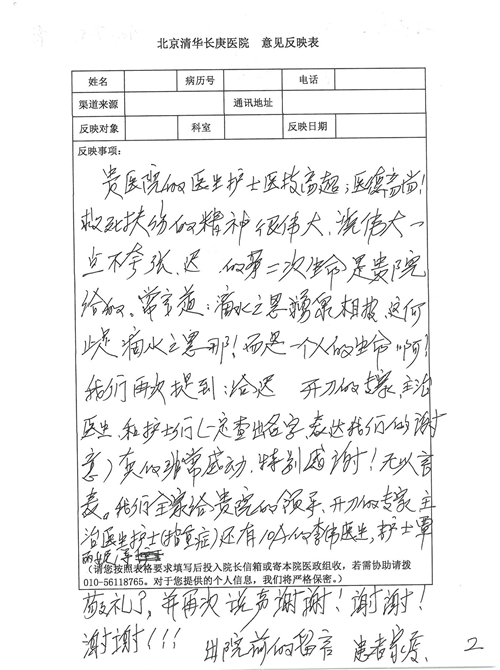 北京清华长庚医院 意见反映表
姓名 病历号 电话
渠道来源 通讯地址
反映对象 科室 反映日期
反映事项：
贵医院的医生护士医技高超；医德高尚！
救死扶伤的精神很伟大，说伟大一
点不夸张，迟 的第二次生命是贵院
给的。常言道：滴水之恩涌泉相报，这何
止是滴水之恩那！而是一个人的生命啊？
我们再次提到：给迟 开刀的专家，主治
医生，和护士们（一定查出名字，表达我们的谢
意）真的非常感动，特别感谢！无以言
表。我们全家给贵院的领导，开刀的专家，主
治医生护士（指重症）还有10A的李伟医生，护士覃
（请您按照表格要求填写后投入院长信箱或寄本院医政组收，若需协助请拨
010-56118765。对于您提供的个人信息，我们将严格保密。）
敬礼了，并再次说声谢谢！谢谢！
谢谢！！！ 出院前的留言 患者家属 2